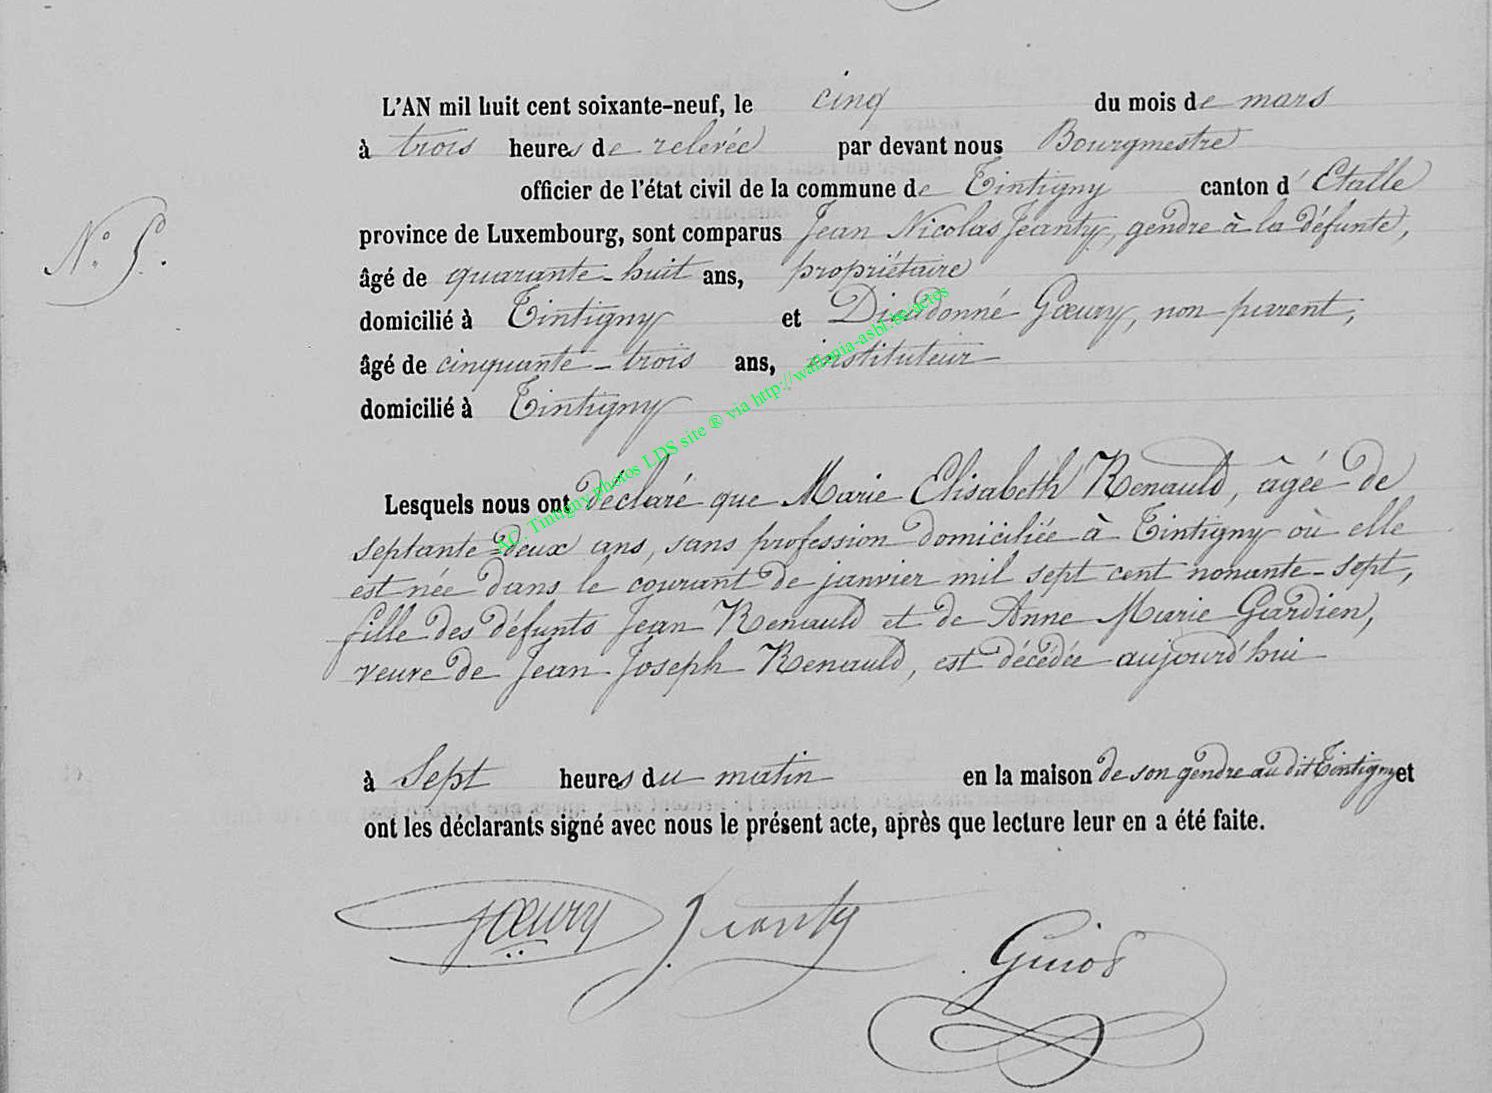 L'AN mil huit cent soixante-neuf, le cinq du mois de mars
à trois heures de relevée par devant nous Bourgmestre
officier de l'état civil de la commune de Tintigny canton d'Etalle
province de Luxembourg, sont comparus Jean Nicolas Jeanty, gendre à la défunte,
N.° 5.
âgé de quarante-huit ans, propriétaire
domicilié à Tintigny et Dieudonné Gœury, non parent,
âgé de cinquante-trois ans, instituteur
domicilié à Tintigny
AC. Tintigny photos LDS site ® via http://wallonia-asbl.be/actes
Lesquels nous ont déclaré que Marie Elisabeth Renauld, âgée de
septante-deux ans, sans profession domiciliée à Tintigny où elle
est née dans le courant de janvier mil sept cent nonante-sept,
fille des défunts Jean Renauld et de Anne Marie Gardien,
veuve de Jean Joseph Renauld, est décédée aujourd'hui
à Sept heures du matin en la maison de son gendre au dit Tintigny et
ont les déclarants signé avec nous le présent acte, après que lecture leur en a été faite.
Gœury J. Jeanty Guiot